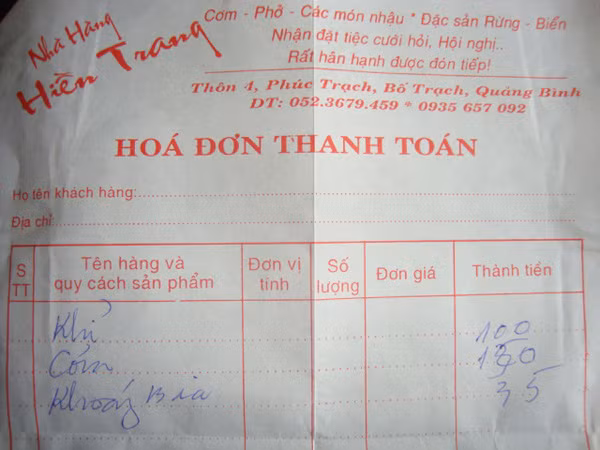 Nhà Hàng
Hiền Trang
Cơm - Phở - Các món nhậu * Đặc sản Rừng - Biển
Nhận đặt tiệc cưới hỏi, Hội nghị..
Rất hân hạnh được đón tiếp!
Thôn 4, Phúc Trạch, Bố Trạch, Quảng Bình
ĐT: 052.3679.459 * 0935 657 092
HOÁ ĐƠN THANH TOÁN
Họ tên khách hàng:
Địa chỉ:
S TT
Tên hàng và quy cách sản phẩm
Đơn vị tính
Số lượng
Đơn giá
Thành tiền
Khỉ 100
Cơm
Khoáng Bia 35